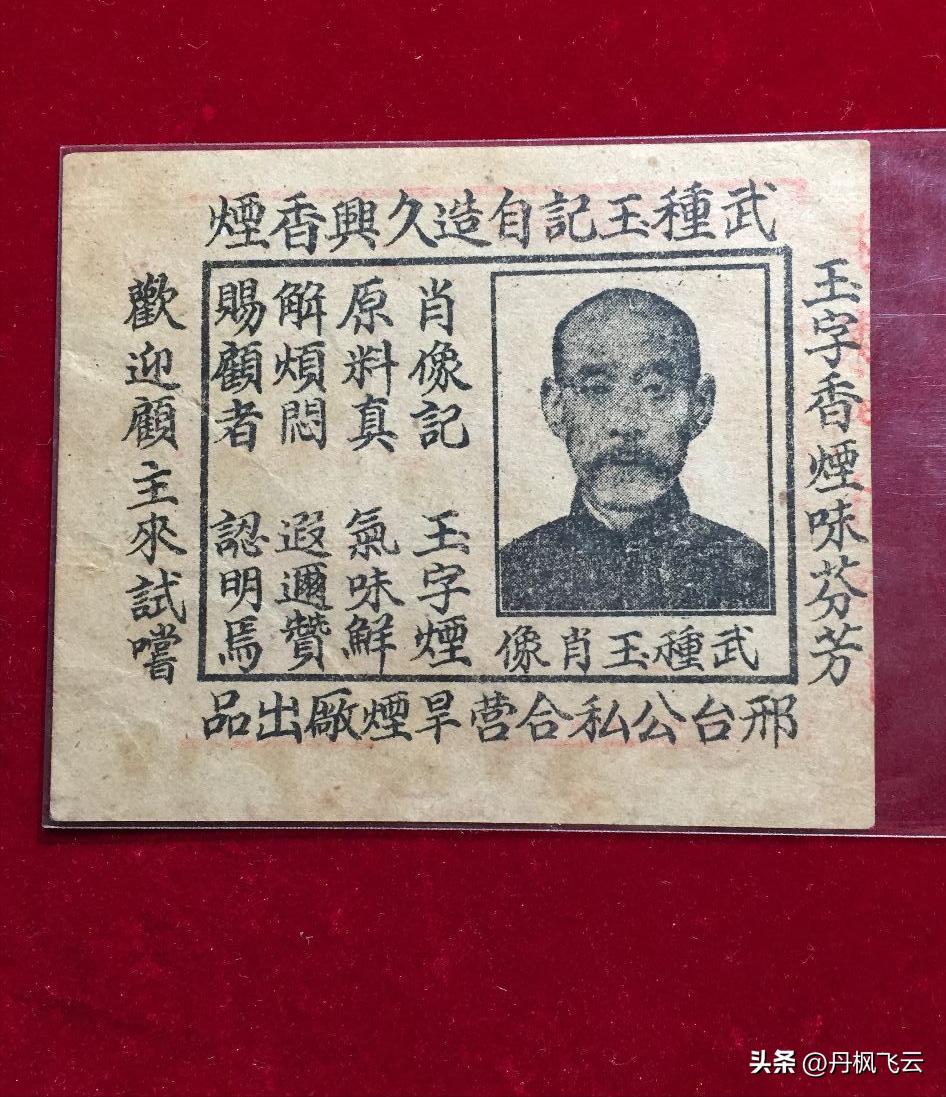 武種玉記自造久興香煙
玉字香煙味芬芳
武種玉肖像
肖像記 玉字煙
原料真 氣味鮮
解煩悶 遐邇贊
賜顧者 認明焉
歡迎顧主來試嚐
邢台公私合营旱煙廠出品
头条 @丹枫飞云